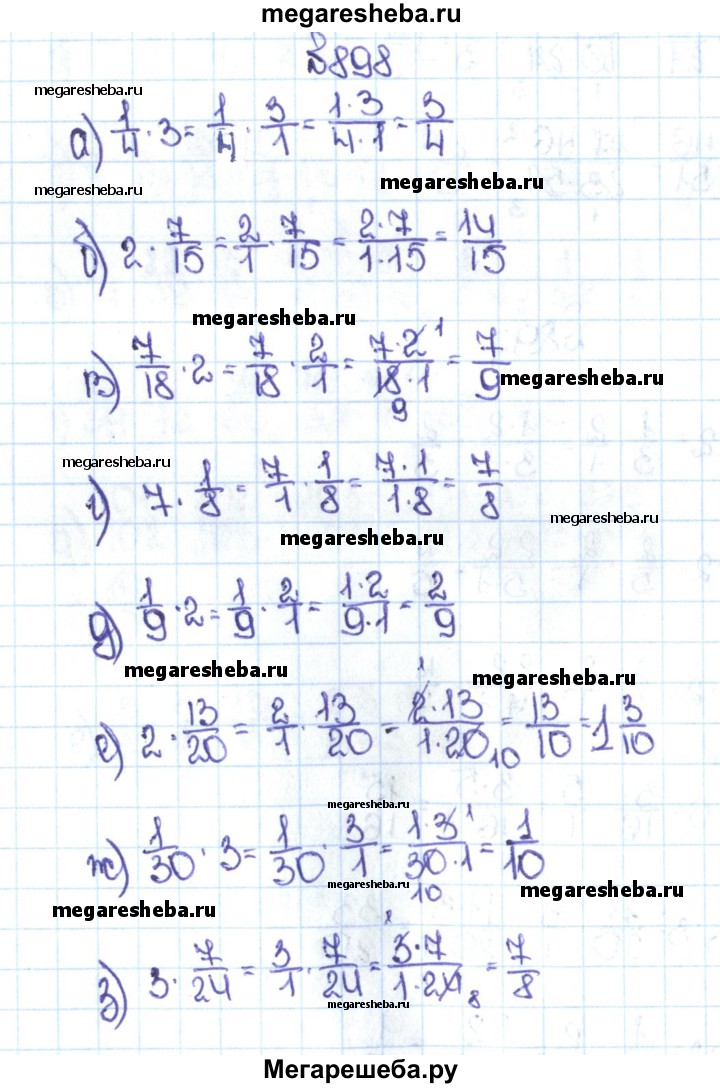 megaresheba.ru
№898
megaresheba.ru
а) 1/4 · 3 = 1/4 · 3/1 = 1·3/4·1 = 3/4
megaresheba.ru megaresheba.ru
б) 2 · 7/15 = 2/1 · 7/15 = 2·7/1·15 = 14/15
megaresheba.ru
в) 7/18 · 2 = 7/18 · 2/1 = 7·2 1/18·1 9 = 7/9
megaresheba.ru
megaresheba.ru
г) 7 · 1/8 = 7/1 · 1/8 = 7·1/1·8 = 7/8
megaresheba.ru
megaresheba.ru
д) 1/9 · 2 = 1/9 · 2/1 = 1·2/9·1 = 2/9
megaresheba.ru megaresheba.ru
е) 2 · 13/20 = 2/1 · 13/20 = 1 2·13/1·20 10 = 13/10 = 1 3/10
megaresheba.ru
ж) 1/30 · 3 = 1/30 · 3/1 = 1·3 1/30·1 10 = 1/10
megaresheba.ru megaresheba.ru
megaresheba.ru
з) 3 · 7/24 = 3/1 · 7/24 = 3·7/1·24 8 = 7/8
megaresheba.ru
Мегарешеба.ру